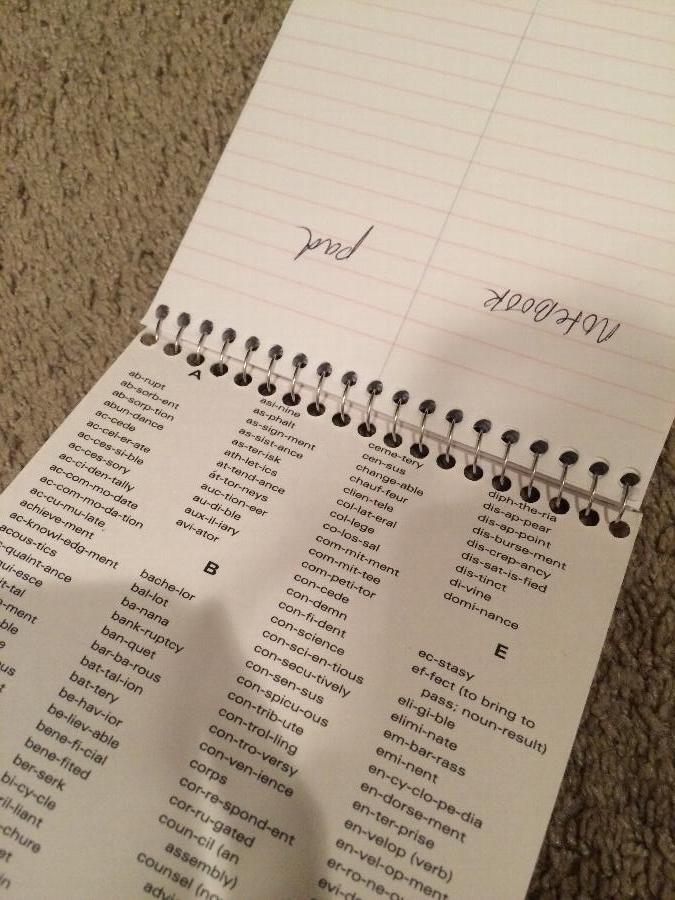 pad
notebook
A
ab-rupt
ab-sorb-ent
ab-sorp-tion
abun-dance
ac-cede
ac-cel-er-ate
ac-ces-si-ble
ac-ces-sory
ac-ci-den-tally
ac-com-mo-date
ac-com-mo-da-tion
ac-cu-mu-late
achieve-ment
ac-knowl-edg-ment
acous-tics
asi-nine
as-phalt
as-sign-ment
as-sist-ance
as-ter-isk
ath-let-ics
at-tend-ance
at-tor-neys
auc-tion-eer
au-di-ble
aux-il-iary
avi-ator
B
bache-lor
bal-lot
ba-nana
bank-ruptcy
ban-quet
bar-ba-rous
bat-tal-ion
bat-tery
be-hav-ior
be-liev-able
bene-fi-cial
bene-fited
ber-serk
bi-cy-cle
ceme-tery
cen-sus
change-able
chauf-feur
clien-tele
col-lat-eral
col-lege
co-los-sal
com-mit-ment
com-mit-tee
com-peti-tor
con-cede
con-demn
con-fi-dent
con-science
con-sci-en-tious
con-secu-tively
con-sen-sus
con-spicu-ous
con-trib-ute
con-trol-ling
con-tro-versy
con-ven-ience
corps
cor-re-spond-ent
cor-ru-gated
coun-cil (an
assembly)
counsel
diph-the-ria
dis-ap-pear
dis-ap-point
dis-burse-ment
dis-crep-ancy
dis-sat-is-fied
dis-tinct
di-vine
domi-nance
E
ec-stasy
ef-fect (to bring to
pass; noun-result)
eli-gi-ble
elimi-nate
em-bar-rass
emi-nent
en-cy-clo-pe-dia
en-dorse-ment
en-ter-prise
en-velop (verb)
en-vel-op-ment